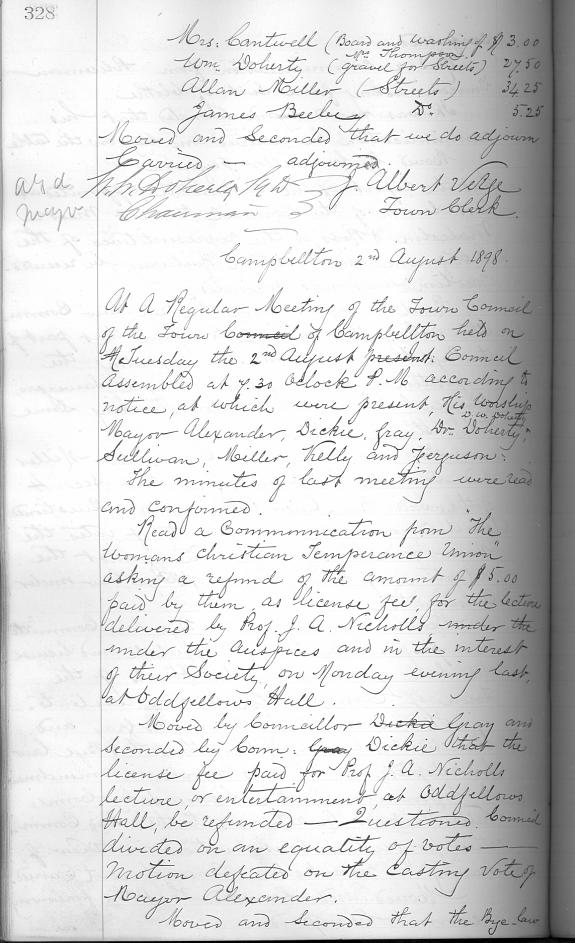 328
Mrs. Cantwell (Board and washing of Mrs. Thompson) $3.00
Wm. Doherty (gravel for Streets) 27.50
Allan Miller (Streets) 34.25
James Beeley Do. 5.25
Moved and Seconded that we do adjourn
Carried — adjourned.
W. W. Doherty M.D. J. Albert Verge
Chairman Town Clerk.
and
Mayor
Campbellton 2nd August 1898.
At A Regular Meeting of the Town Council
of the Town Council of Campbellton held on
Tuesday the 2nd August present: Council
Assembled at 7.30 Oclock P.M according to
notice, at which were present, His Worship
Mayor Alexander, Dickie, Gray, Dr. Doherty, D. W. Doherty,
Sullivan, Miller, Kelly and Ferguson.
The minutes of last meeting were read
and confirmed.
Read a Communication from "The
Womans Christian Temperance Union"
asking a refund of the amount of $5.00
paid by them, as license fee, for the lecture
delivered by Prof. J. A. Nicholls under the
under the Auspices and in the interest
of their Society, on Monday evening last,
at Oddfellows Hall.
Moved by Councillor Dickie Gray and
seconded by Coun: Gray Dickie that the
license fee paid for Prof J. A. Nicholls
lecture, or entertainment, at Oddfellows
Hall, be refunded — Questioned. Council
divided on an equality of votes —
Motion defeated on the casting Vote of
Mayor Alexander.
Moved and Seconded that the Bye-law